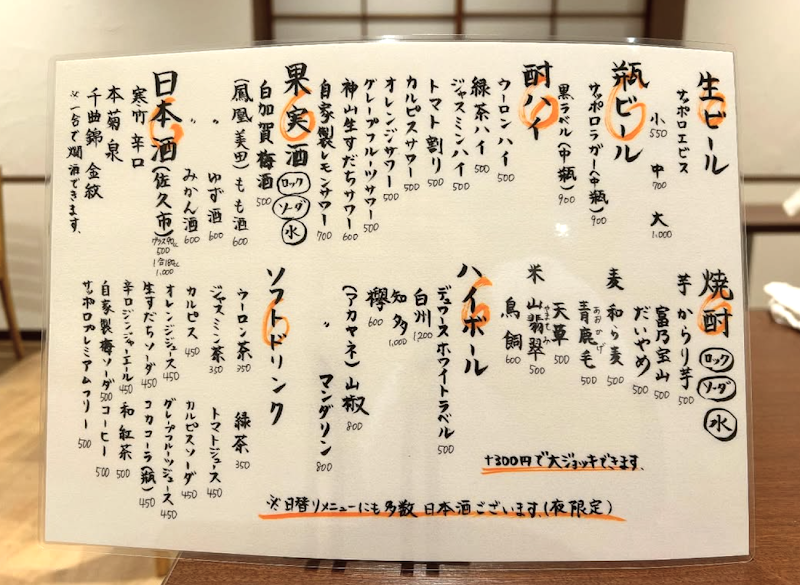 生ビール
サッポロエビス
小 550
中 700
大 1,000
瓶ビール
サッポロラガー(中瓶) 900
黒ラベル(中瓶) 900
酎ハイ
ウーロンハイ 500
緑茶ハイ 500
ジャスミンハイ 500
トマト割り 500
カルピスサワー 500
オレンジサワー 500
グレープフルーツサワー 500
神山生すだちサワー 600
自家製レモンサワー 700
果実酒 ロック ソーダ 水
白加賀梅酒 500
(鳳凰美田)もも酒 600
〃 ゆず酒 600
〃 みかん酒 600
日本酒(佐久市) グラス90cc 500 1合180cc 1,000
寒竹 辛口
本菊泉
千曲錦 金紋
※一合で燗酒できます。
焼酎 ロック ソーダ 水
芋 からり芋 500
富乃宝山 500
だいやめ 500
麦 和ら麦 500
青鹿毛 あおかげ 500
天草 500
米 山翡翠 やませみ 500
鳥飼 600
ハイボール
デュワーズホワイトラベル 500
白州 1200
知多 1,000
欅 600
(アカヤネ)山椒 800
〃 マンダリン 800
ソフトドリンク
ウーロン茶 350
緑茶 350
ジャスミン茶 350
トマトジュース 450
カルピス 450
カルピスソーダ 450
オレンジジュース 450
グレープフルーツジュース 450
生すだちソーダ 450
コカコーラ(瓶) 450
辛口ジンジャーエール 450
和紅茶 500
自家製梅ソーダ 500
コーヒー 500
サッポロプレミアムフリー 500
+300円で大ジョッキできます。
※日替りメニューにも多数 日本酒ございます。(夜限定)